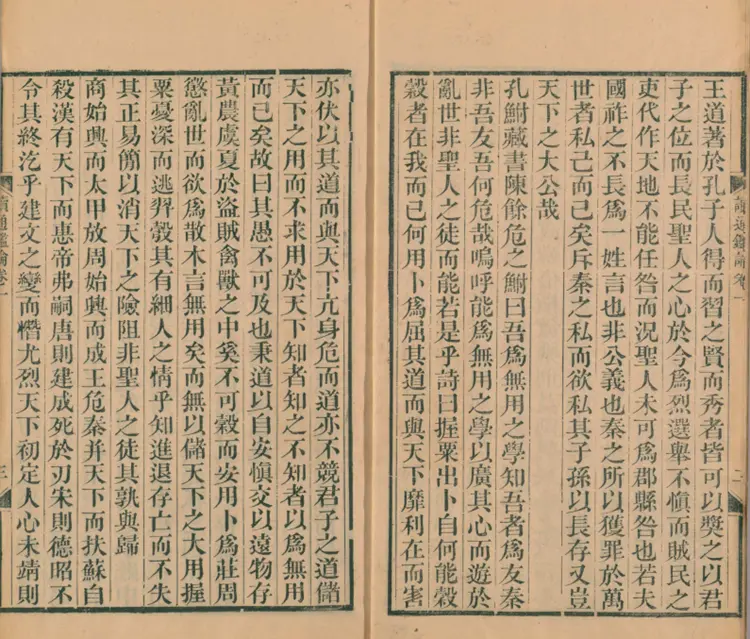 王道著於孔子人得而習之賢而秀者皆可以獎之以君
子之位而長民聖人之心於今爲烈選舉不愼而賊民之
吏代作天地不能任咎而況聖人未可爲郡縣咎也若夫
國祚之不長爲一姓言也非公義也秦之所以獲罪於萬
世者私己而已矣斥秦之私而欲私其子孫以長存又豈
天下之大公哉
孔鮒藏書陳餘危之鮒曰吾爲無用之學知吾者爲友秦
非吾友吾何危哉嗚呼能爲無用之學以廣其心而遊於
亂世非聖人之徒而能若是乎詩曰握粟出卜自何能穀
穀者在我而已何用卜爲屈其道而與天下靡利在而害
讀通鑑論卷一
二
亦伏以其道而與天下亢身危而道亦不競君子之道儲
天下之用而不求用於天下知者知之不知者以爲無用
而已矣故曰其愚不可及也秉道以自安愼交以遠物存
黃農虞夏於盜賊禽獸之中奚不可穀而安用卜爲莊周
懲亂世而欲爲散木言無用矣而無以儲天下之大用握
粟憂深而逃羿彀其有細人之情乎知進退存亡而不失
其正易簡以消天下之險阻非聖人之徒其孰與歸
商始興而太甲放周始興而成王危秦并天下而扶蘇自
殺漢有天下而惠帝弗嗣唐則建成死於刃宋則德昭不
令其終汔乎建文之變而憯尤烈天下初定人心未靖則
讀通鑑論卷一
三